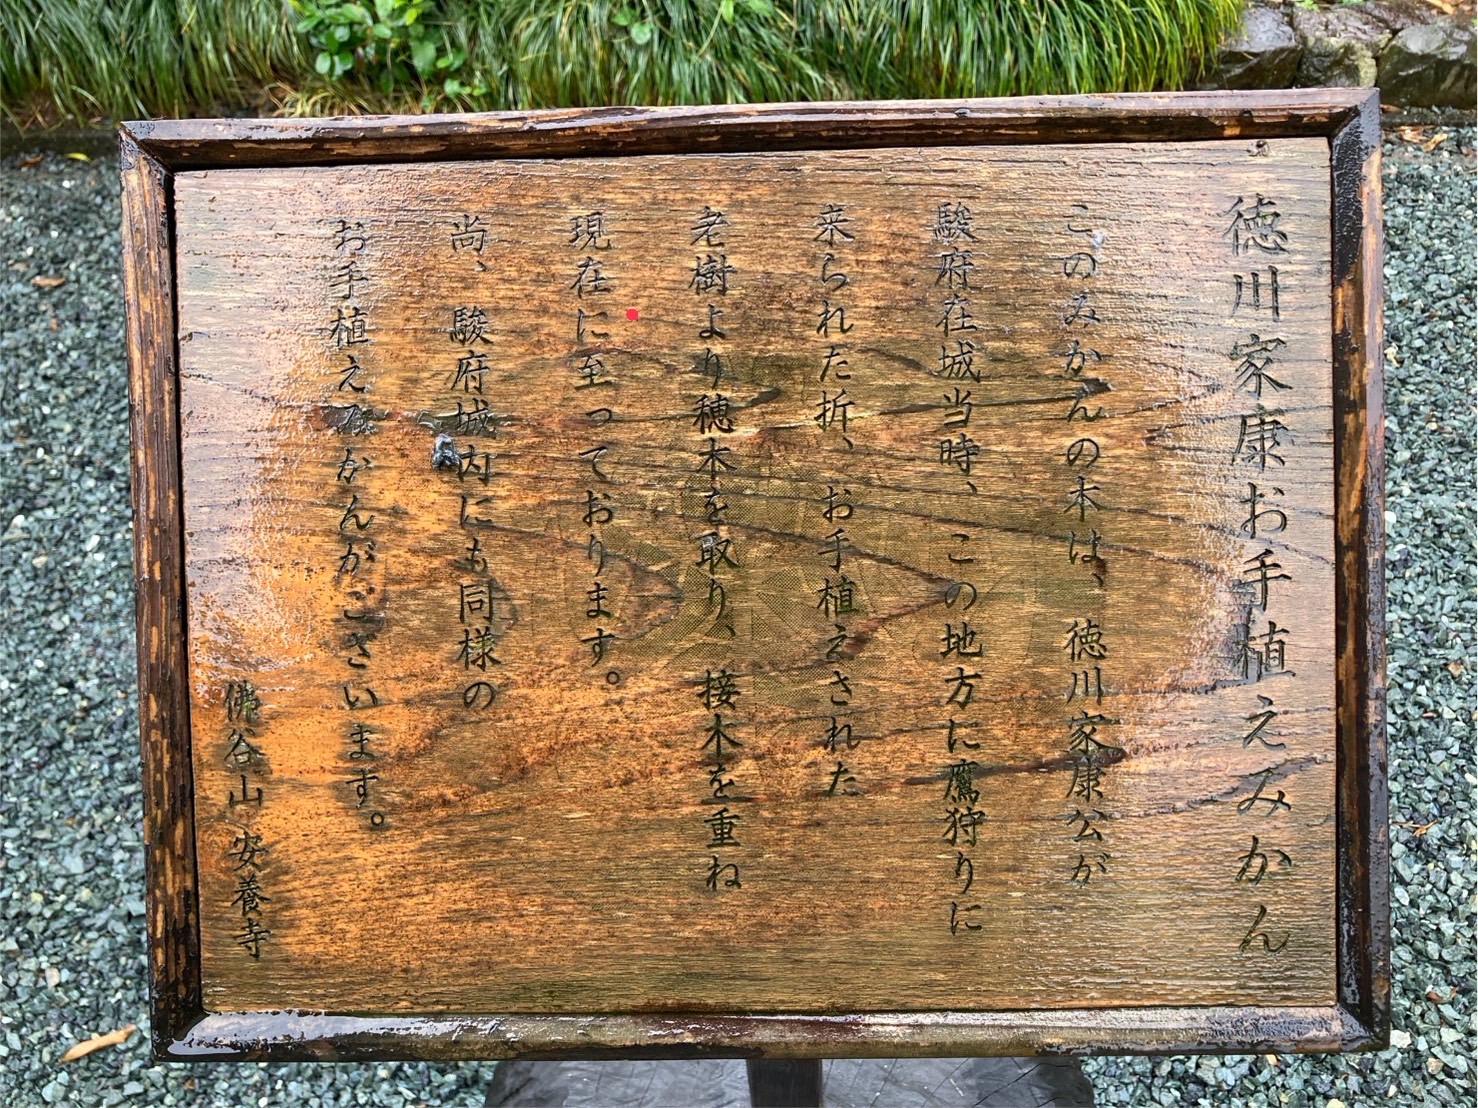 徳川家康お手植えみかん
このみかんの木は、徳川家康公が
駿府在城当時、この地方に鷹狩りに
来られた折、お手植えされた
老樹より穂木を取り、接木を重ね
現在に至っております。
尚、駿府城内にも同様の
お手植えみかんがございます。
佛谷山 安養寺